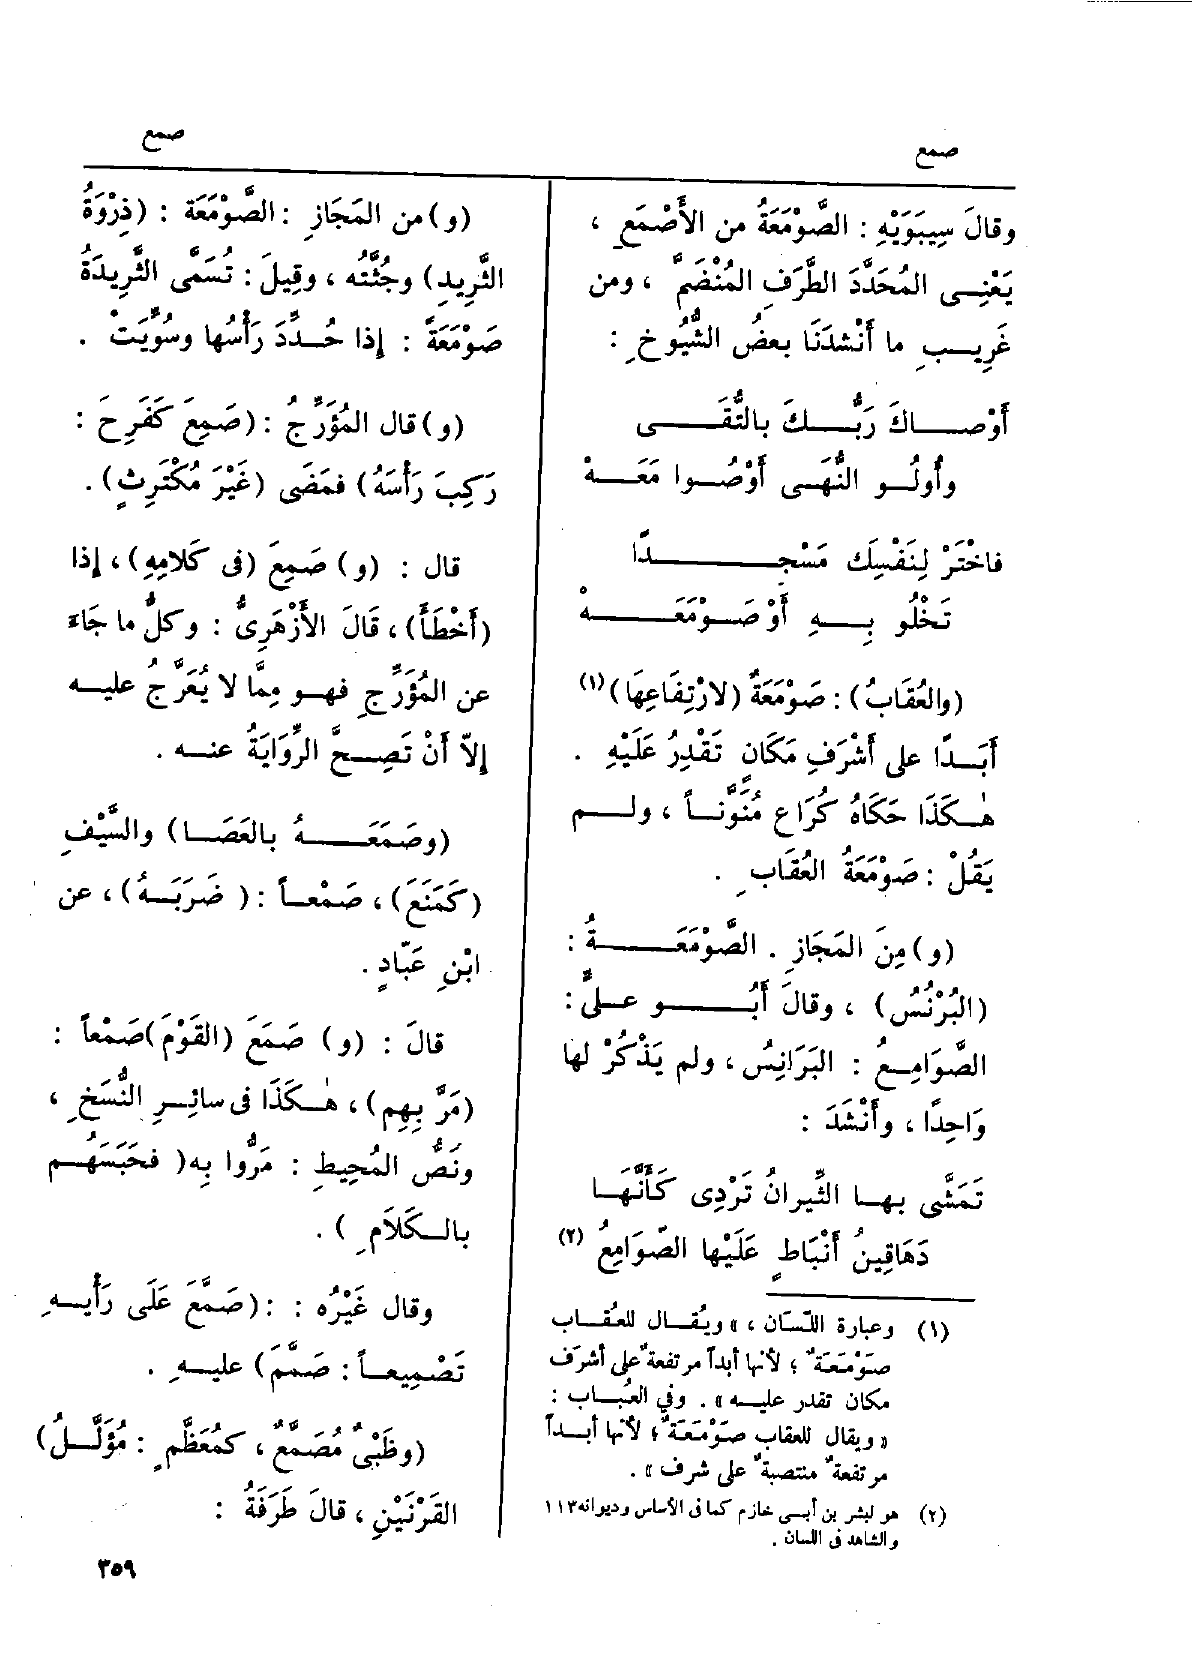 صمع
صمع
وقالَ سِيبَوَيْهِ : الصَّوْمَعَةُ من الأَصْمَعِ ،
يَعْنِى المُحَدَّدَ الطَّرَفِ المُنْضَمَّ ، ومن
غَرِيبِ ما أَنْشدَنَا بعضُ الشُّيُوخِ :
أَوْصاكَ رَبُّكَ بالتُّقَى
وأُولُو النُّهَى أَوْصُوا مَعَهْ
فاخْتَرْ لِنَفْسِك مَسْجِدًا
تَخْلُو بِهِ أَوْ صَوْمَعَهْ
(والعُقَابُ) : صَوْمَعَةٌ (لارْتِفَاعِهَا) (١)
أَبَدًا على أَشْرَفِ مَكَانٍ تَقْدِرُ عَلَيْهِ .
هٰكَذَا حَكَاهُ كُرَاع مُنَوَّناً ، ولم
يَقُلْ : صَوْمَعَةُ العُقَابِ .
(و) مِنَ المَجَازِ . الصَّوْمَعَةُ :
(البُرْنُسُ) ، وقالَ أَبُو علىٍّ :
الصَّوَامِعُ : البَرَانِسُ ، ولم يَذْكُرْ لها
وَاحِدًا ، وأَنْشَدَ :
تَمَشَّى بها الثِّيرانُ تَرْدِى كَأَنَّهَا
دَهَاقِينُ أَنْبَاطٍ عَلَيْها الصَّوَامِعُ (٢)
(١) وعبارة اللّسَان ، « ويُقال للعُقاب
صَوْمَعَةٌ ؛ لأنها أبداً مرتفعةٌ على أشرف
مكان تقدر عليه » . وفي العُباب :
« ويقال للعقاب صَوْمَعَةٌ ؛ لأنّها أبداً
مرتفعةٌ منتصبةٌ على شرف » .
(٢) هو لبشر بن أبى خازم كما فى الأساس وديوانه ١١٣
والشاهد فى اللسان .
(و) من المَجَازِ : الصَّوْمَعَة : (ذِرْوَةُ
الثَّرِيدِ) وجُثَّتُه ، وقِيلَ : تُسَمَّى الثَّرِيدَةُ
صَوْمَعَةً : إذا حُدِّدَ رَأْسُها وسُوِّيَتْ .
(و) قال المُؤَرِّجُ : (صَمِعَ كَفَرِحَ :
رَكِبَ رَأْسَهُ) فمَضَى (غَيْرَ مُكْتَرِثٍ) .
قال : (و) صَمِعَ (فى كَلامِهِ) ، إذا
(أَخْطَأَ) ، قَالَ الأَزْهَرِىُّ : وكلُّ ما جَاءَ
عن المُؤَرِّجِ فهو مِمَّا لا يُعَرَّجُ عليه
إلاّ أَنْ تَصِحَّ الرِّوَايَةُ عنه .
(وصَمَعَهُ بالعَصَا) والسَّيْفِ
(كَمَنَعَ) ، صَمْعاً : ( ضَرَبَهُ) ، عن
ابْنِ عَبّادٍ .
قالَ : (و) صَمَعَ (القَوْمَ) صَمْعاً :
(مَرَّ بِهِم) ، هٰكَذَا فى سائِرِ النُّسَخِ ،
ونَصُّ المُحِيطِ : مَرُّوا بِه ( فحَبَسَهُم
بالكَلَامِ ) .
وقال غَيْرُه : : (صَمَّعَ عَلَى رَأْيِهِ
تَصْمِيعاً : صَمَّمَ) عليهِ .
(وظَبْىٌ مُصَمَّعٌ ، كمُعَظَّمٍ : مُؤَلَّلُ)
القَرْنَيْنِ ، قالَ طَرَفَةُ :
٣٥٩